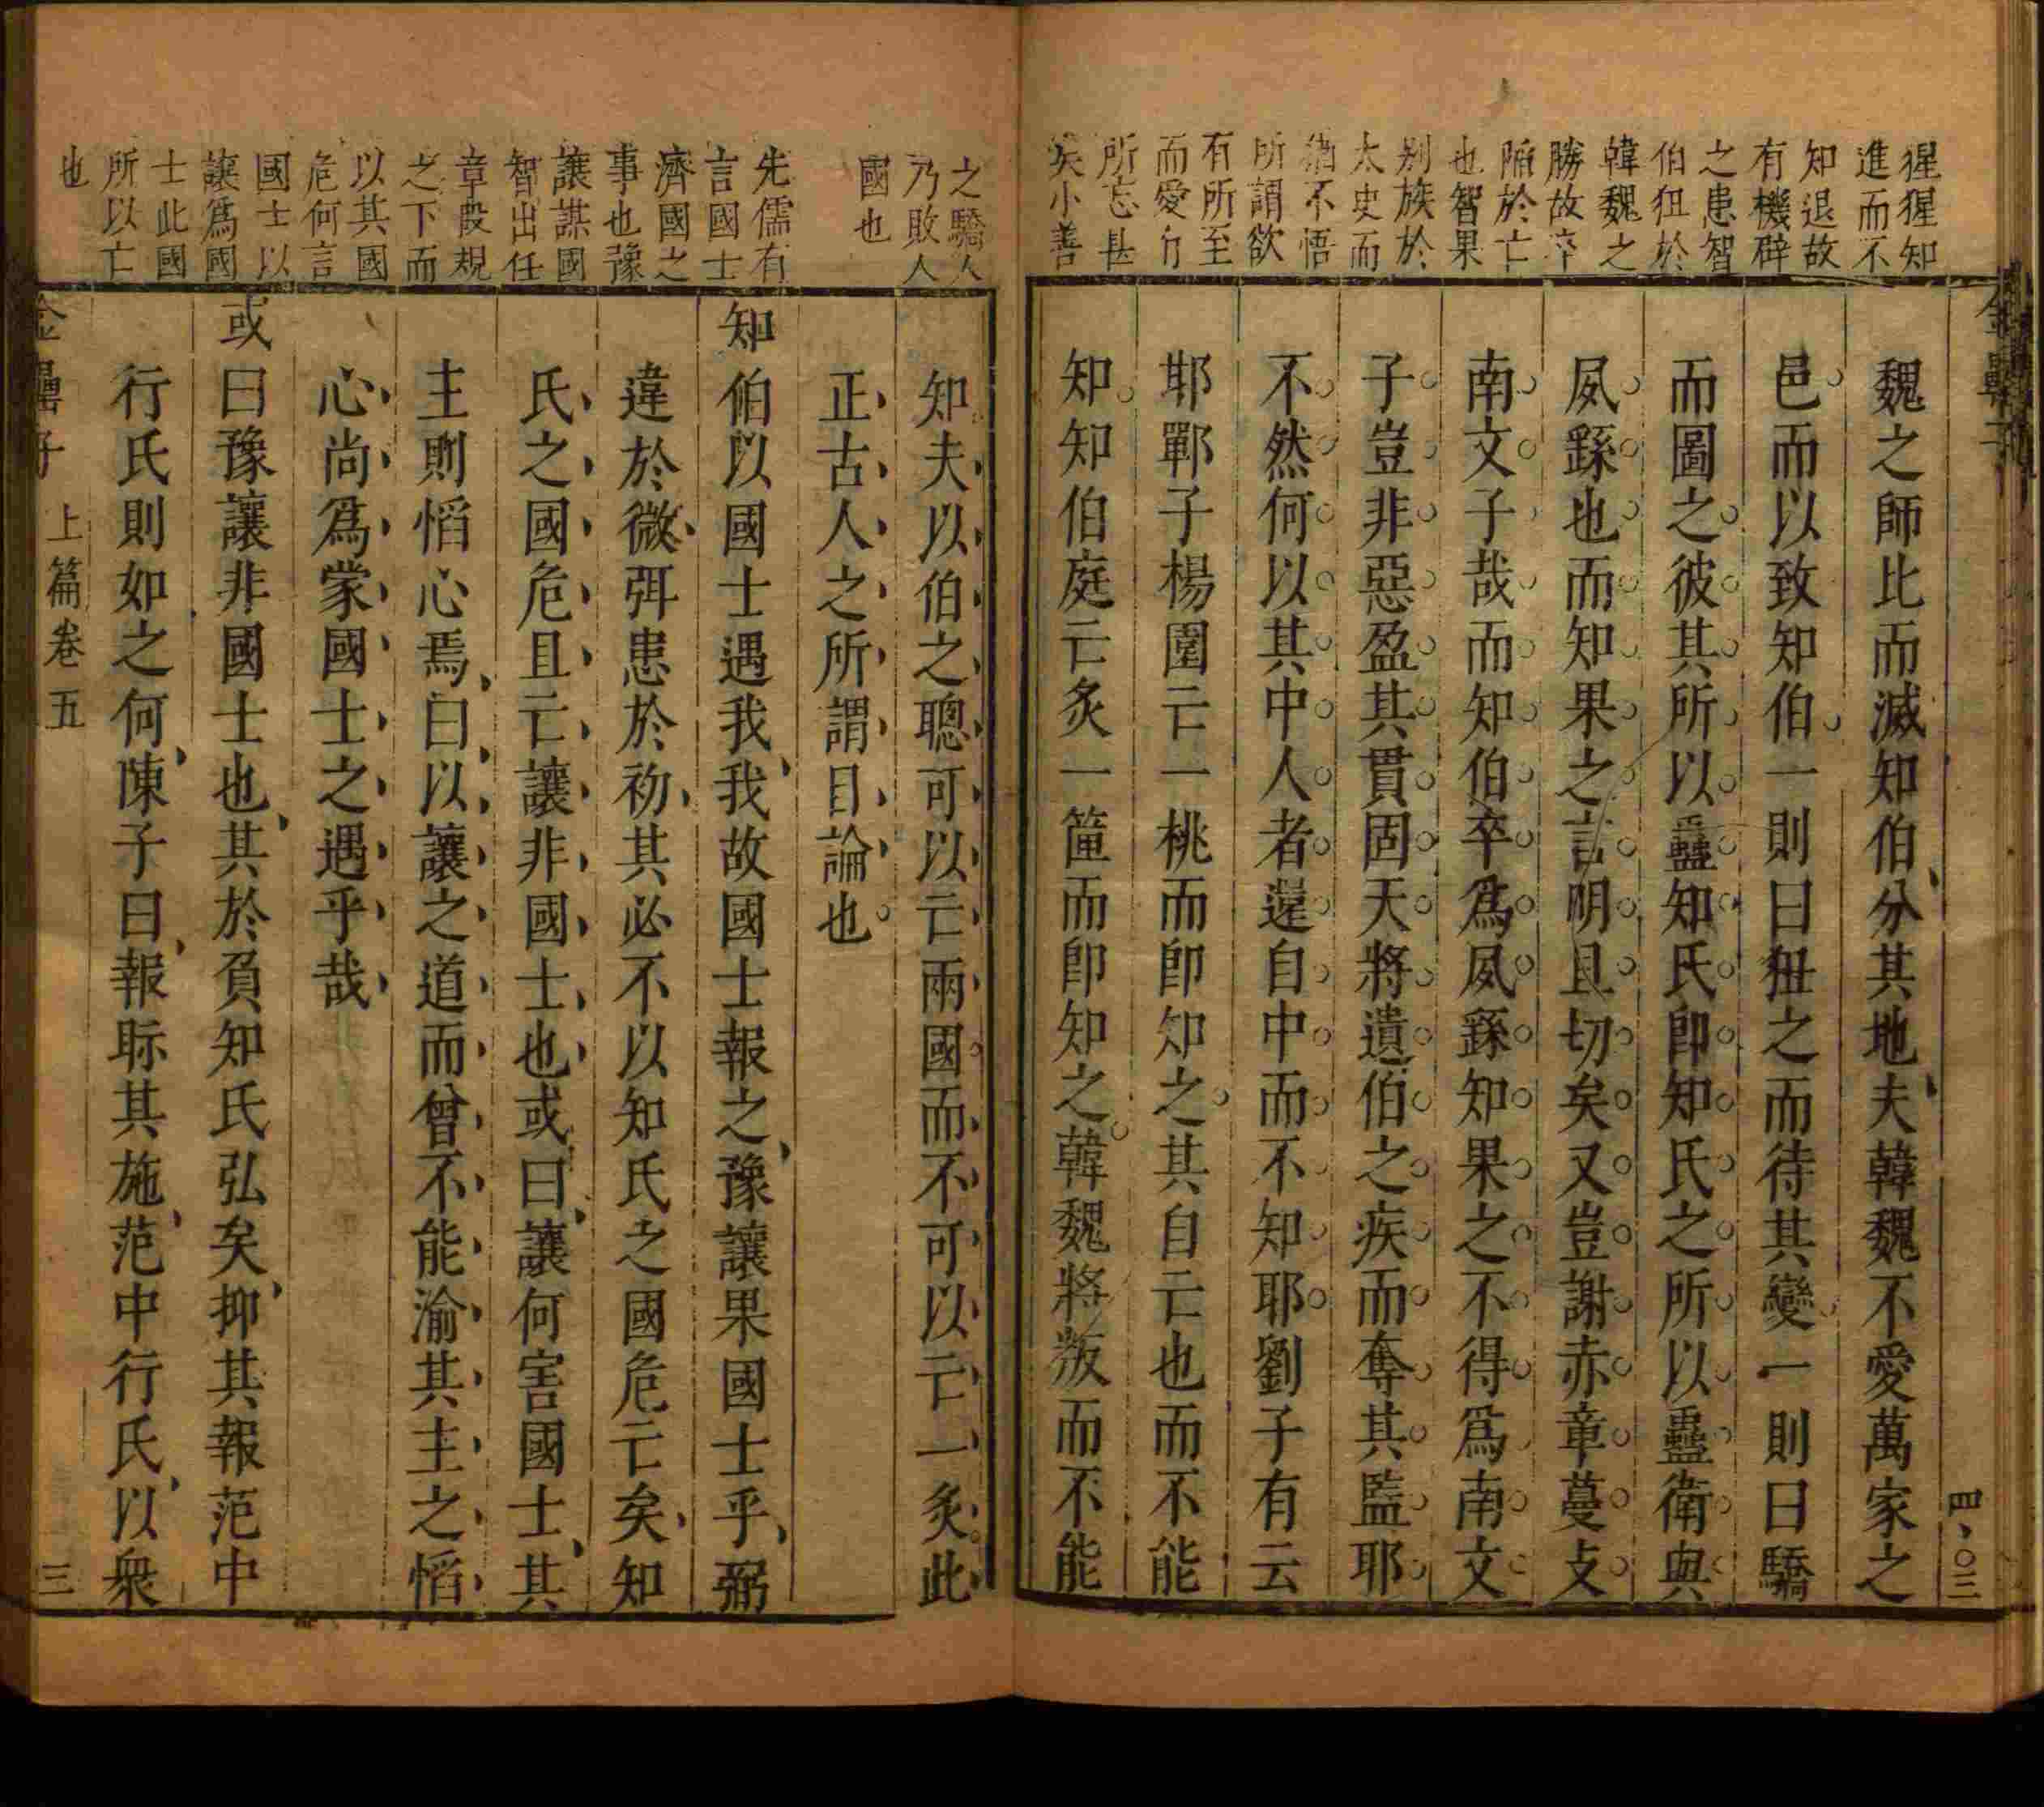 猩猩知
進而不
知退故
有機穽
之患智
伯狃於
韓魏之
勝故卒
陷於亡
也智果
别族於
太史而
猶不悟
所謂欲
有所至
而愛有
所忘甚
矣小善
魏之師比而滅知伯分其地夫韓魏不愛萬家之
邑而以致知伯一則曰狃之而待其變一則曰驕
而圖之彼其所以蠱知氏卽知氏之所以蠱衛與
夙繇也而知果之言明且切矣又豈謝赤章蔓攴
南文子哉而知伯卒爲夙繇知果之不得爲南文
子豈非惡盈其貫固天將遺伯之疾而奪其監耶
不然何以其中人者遑自中而不知耶劉子有云
邯鄲子楊園亡一桃而卽知之其自亡也而不能
知知伯庭亡炙一篚而卽知之韓魏將叛而不能
四、〇三
之驕人
乃敗人
國也
先儒有
言國士
濟國之
事也豫
讓謀國
智出任
章叚規
之下而
以其國
危何言
國士以
讓爲國
士此國
所以亡
也
知夫以伯之聰可以亡兩國而不可以亡一炙此
正古人之所謂目論也
知伯以國士遇我我故國士報之豫讓果國士乎弼
違於微弭患於初其必不以知氏之國危亡矣知
氏之國危且亡讓非國士也或曰讓何害國士其
主則慆心焉曰以讓之道而曾不能渝其主之慆
心尚爲蒙國士之遇乎哉
或曰豫讓非國士也其於負知氏弘矣抑其報范中
行氏則如之何陳子曰報眎其施范中行氏以衆
金罍子 上篇卷五 三